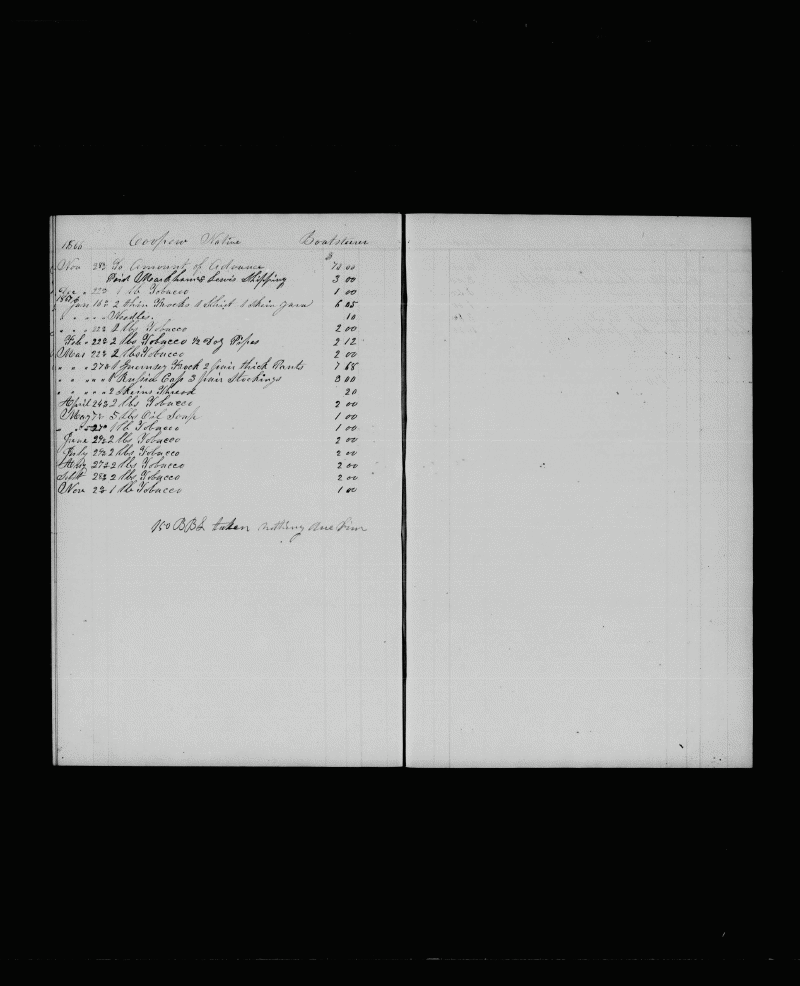 1866 Cooper Native Boatsteerer
$
Nov 28th To Amount of Advance 70 00
Paid Lewis Shipping 3 00
Dec " 22d 1 lb Tobacco 1 00
1867
Jan 16th 2 thin Frocks 1 Shirt 1 Skein yarn 6 05
" " " " Needles 10
" " " 22d 2 lbs Tobacco 2 00
Feb " 22d 2 lbs Tobacco ½ doz Pipes 2 12
Mar 22d 2 lbs Tobacco 2 00
" " " 27th 1 Guernsey Frock 2 pair thick Pants 7 68
" " " " " 1 Russia Cap 3 pair Stockings 3 00
" " " " " 2 Skeins Thread 20
April 24th 2 lbs Tobacco 2 00
May 7th 5 lbs Oil Soap 1 00
" " 27th 1 lb Tobacco 1 00
June 29th 2 lbs Tobacco 2 00
July 29th 2 lbs Tobacco 2 00
Aug 27th 2 lbs Tobacco 2 00
Sept 28th 2 lbs Tobacco 2 00
Nov 2d 1 lb Tobacco 1 00
150 BBls taken nothing due him